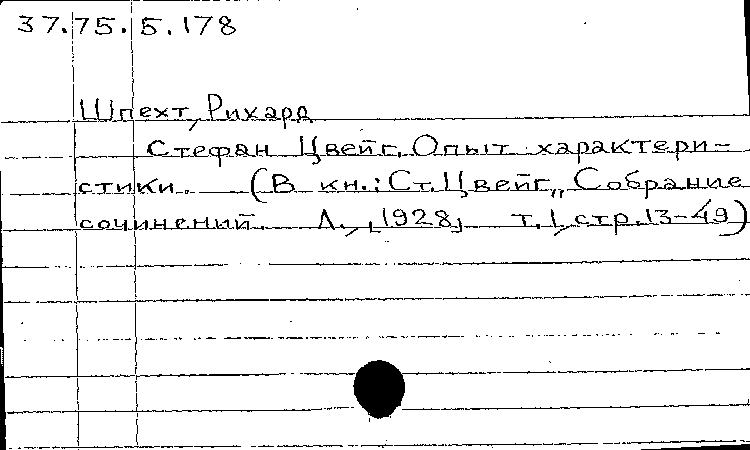 37.75.5.178
Шпехт, Рихард
Стефан Цвейг. Опыт характери-
стики. (В кн.: Ст. Цвейг, Собрание
сочинений. Л., [1928] т. 1, стр. 13-49)